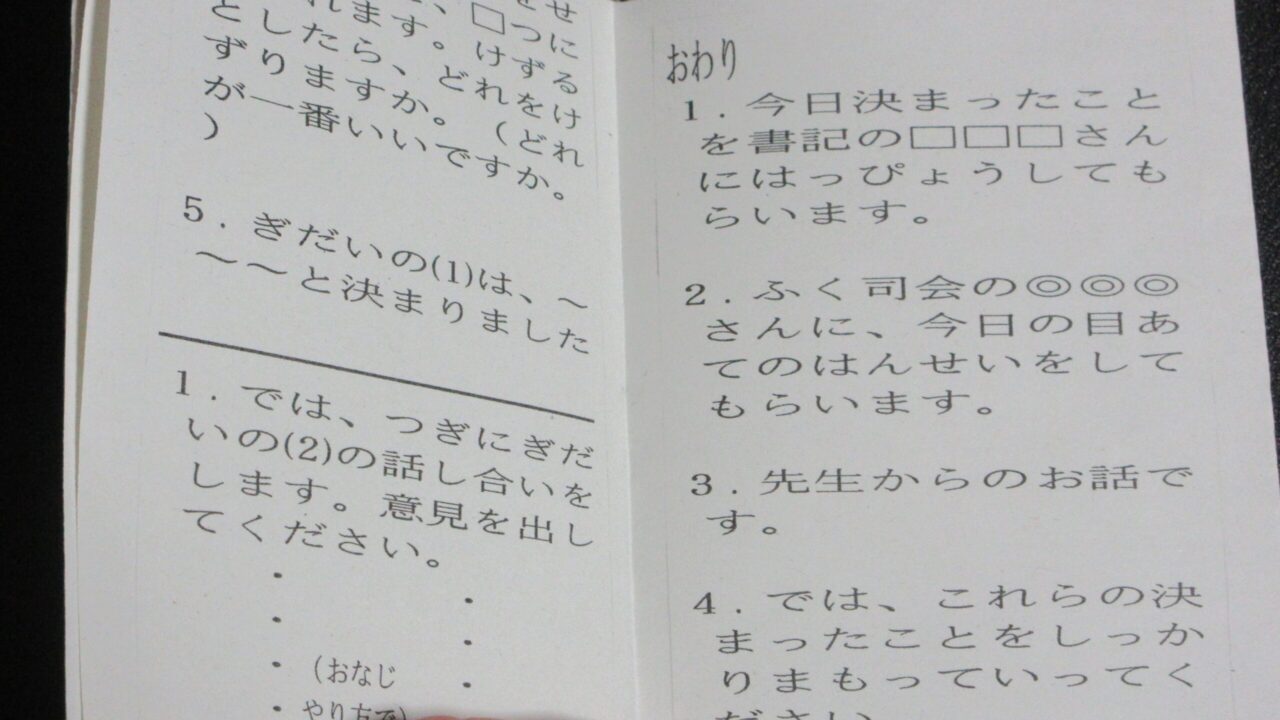 せに
れます。□つずる
としたら、けをけ
ずりますか。(どれ
が一番いいですか。
)
5.ぎだいの(1)は、～
～～と決まりました
1.では、つぎにぎだ
いの(2)の話し合いを
します。意見を出し
てください。
・
・
・
・
・
・
・
(おなじ
やり方で)
おわり
1.今日決まったこと
を書記の□□□さん
にはっぴょうしても
らいます。
2.ふく司会の◎◎◎
さんに、今日の目あ
てのはんせいをして
もらいます。
3.先生からのお話で
す。
4.では、これらの決
まったことをしっか
りまもっていってく
ださい。